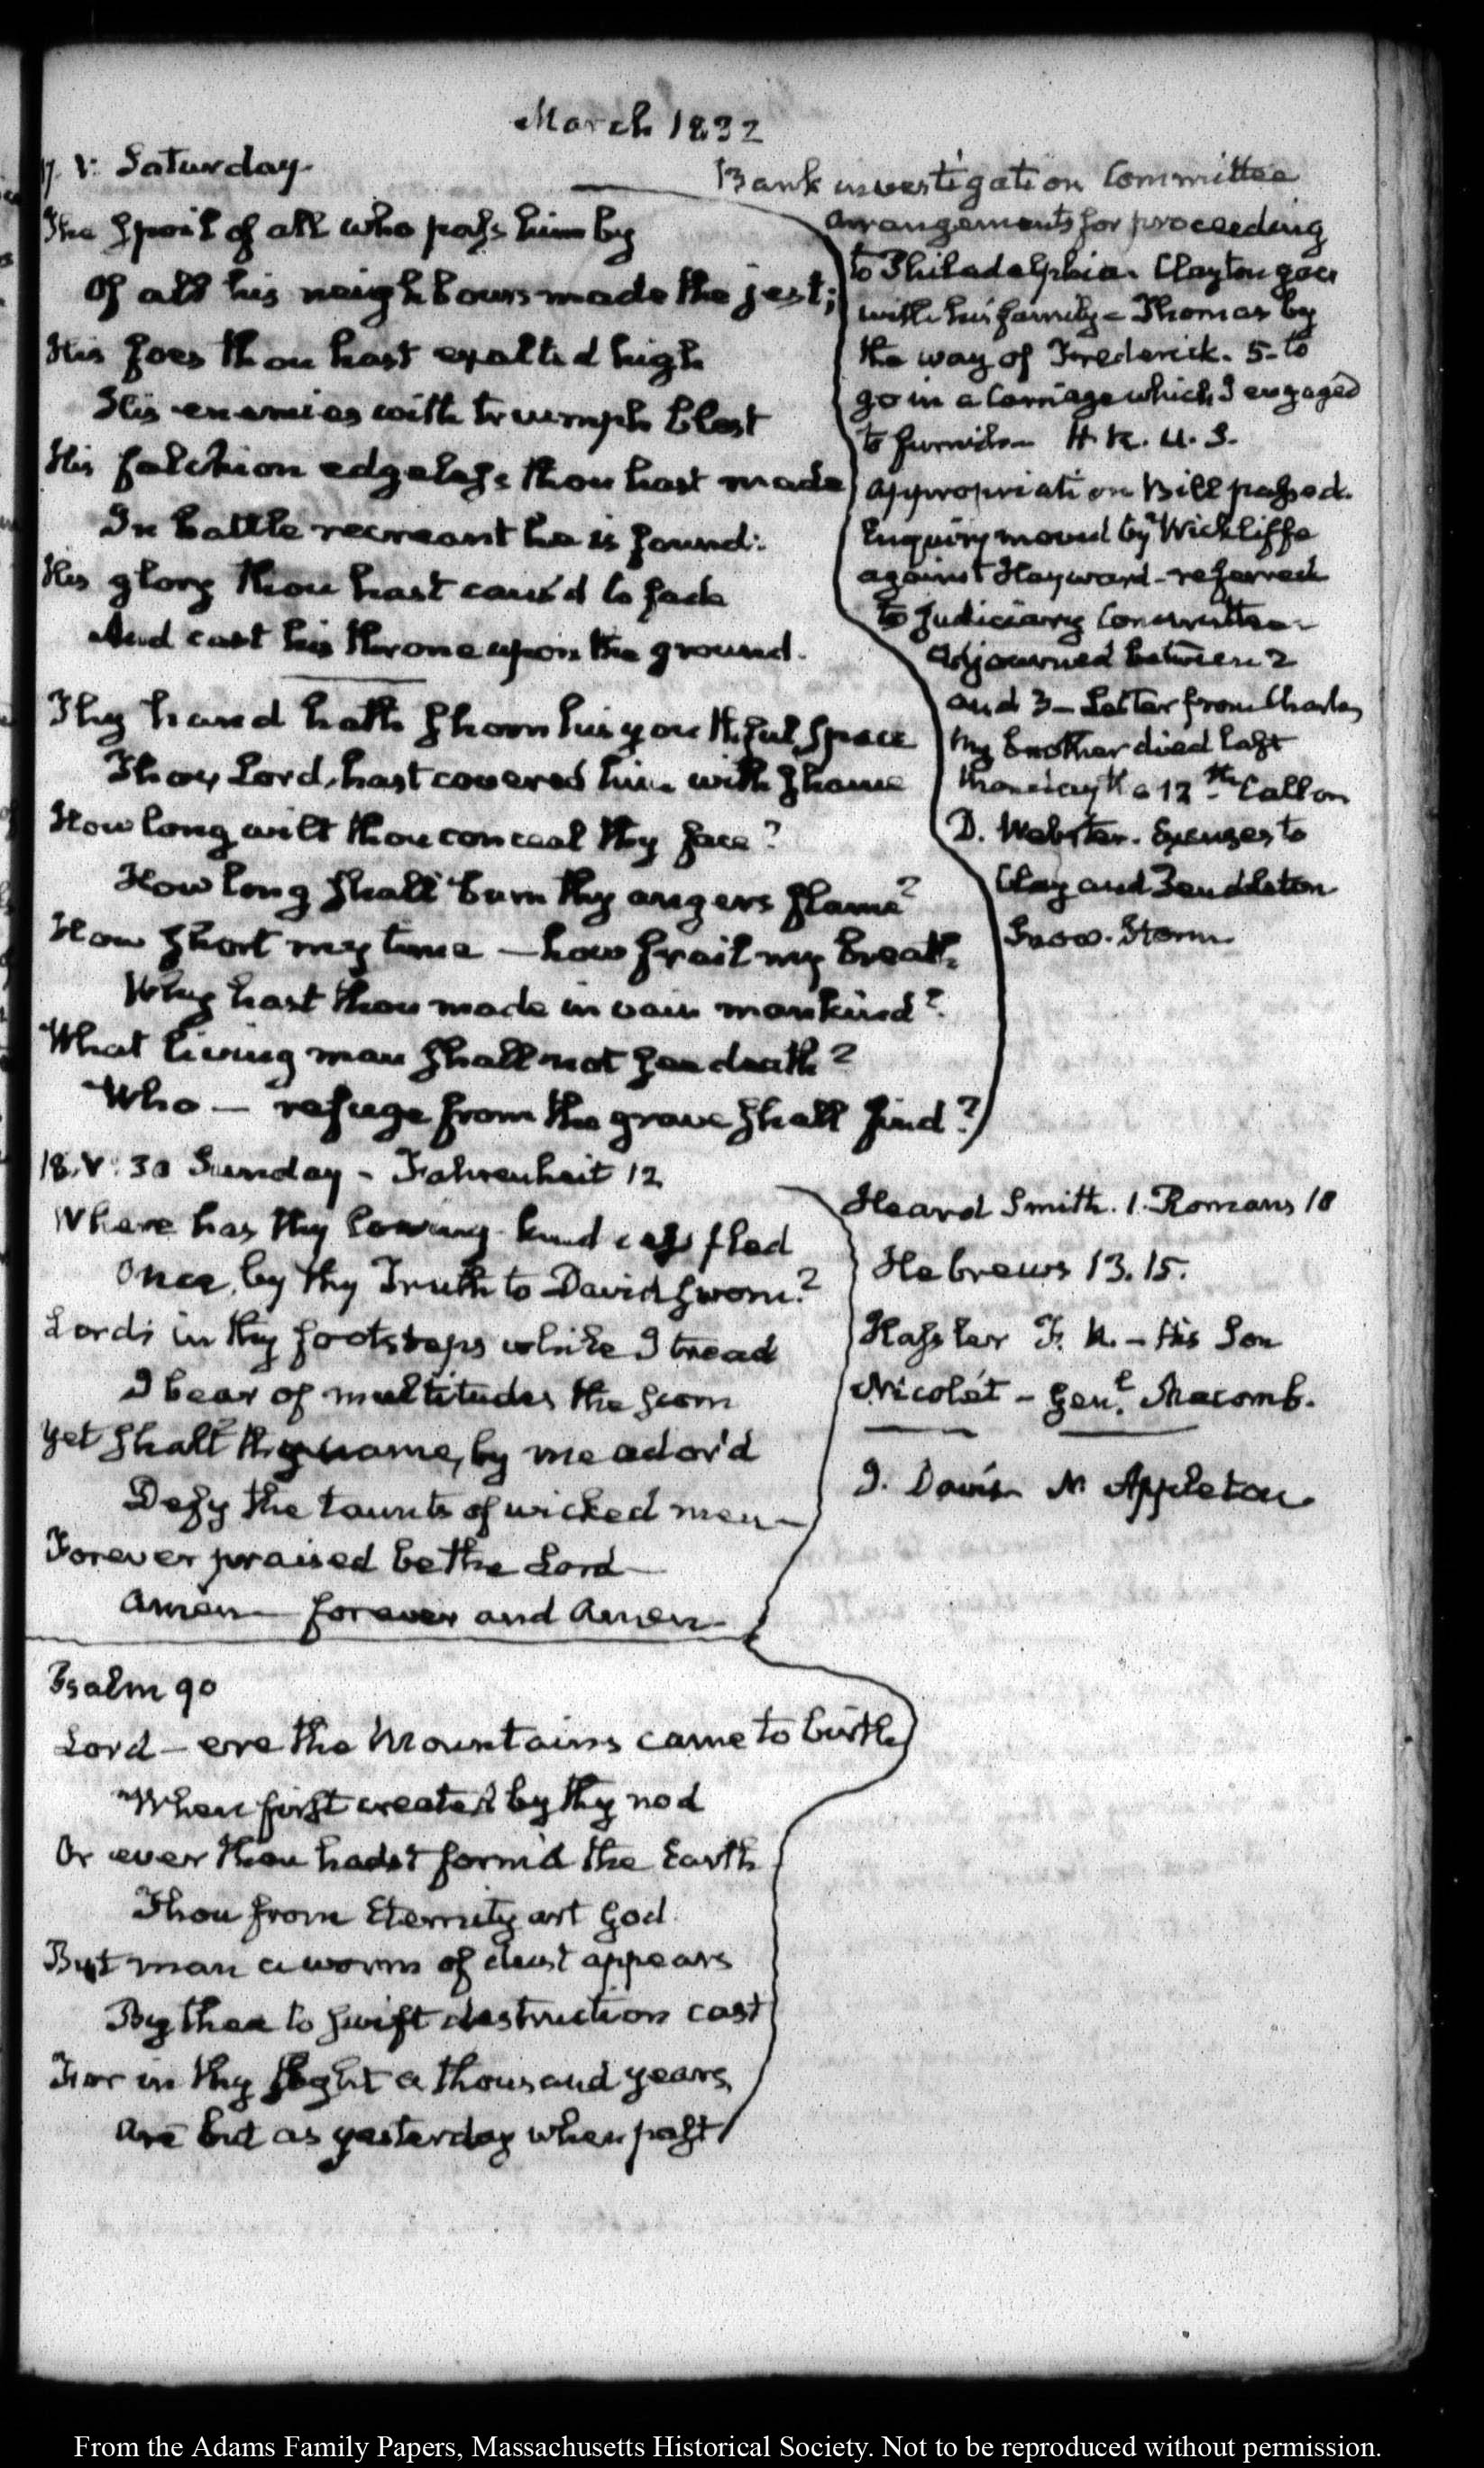 March 1832
17. V: Saturday.
The spoil of all who pass him by
Of all his neighbours made the jest;
His foes thou hast exalted high
His enemies with triumph blest
His falchion edgeless thou hast made
In battle recreant he is found:
His glory thou hast caus'd to fade
And cast his throne upon the ground.
Thy hand hath shorn his youthful space
Thou, Lord, hast covered him with shame
How long wilt thou conceal thy face?
How long shall burn thy angers flame?
How short my time — how frail my breath
Why hast thou made in vain mankind?
What living man shall not see death?
Who — refuge from the grave shall find?
Bank investigation Committee
arrangements for proceeding
to Philadelphia. Clayton goes
with his family - Thomas by
the way of Frederick. 5 - to
go in a Carriage which I engaged
to furnish - H. R. U. S.
appropriation Bill passed.
Enquiry moved by Wickliffe
against Hayward - referred
to Judiciary Committee -
Adjourned between 2
and 3 - Letter from Charles
My brother died last
12th. Call on
D. Webster. Excuses to
Clay and Zenddeton
Snow. Storm
18. V: 30 Sunday - Fahrenheit 12
Where has thy loving-kindness fled
Once, by thy Truth to David sworn?
Lord; in thy footsteps while I tread
I bear of multitudes the scorn
Yet shall thy name, by me ador'd
Defy the taunts of wicked men -
Forever praised be the Lord -
Amen - forever and Amen -
Heard Smith. 1. Romans 10
Hebrews 13. 15.
Hassler F. R. - His Son
Nicolét - Genl. Macomb.
I. Davis N Appleton
Psalm 90
Lord - ere the Mountains came to birth
When first created by thy nod
Or ever thou hadst form'd the Earth
Thou from Eternity art God
But man a worm of dust appears
By thee to swift destruction cast
For in thy sight a thousand years
Are but as yesterday when past
From the Adams Family Papers, Massachusetts Historical Society. Not to be reproduced without permission.